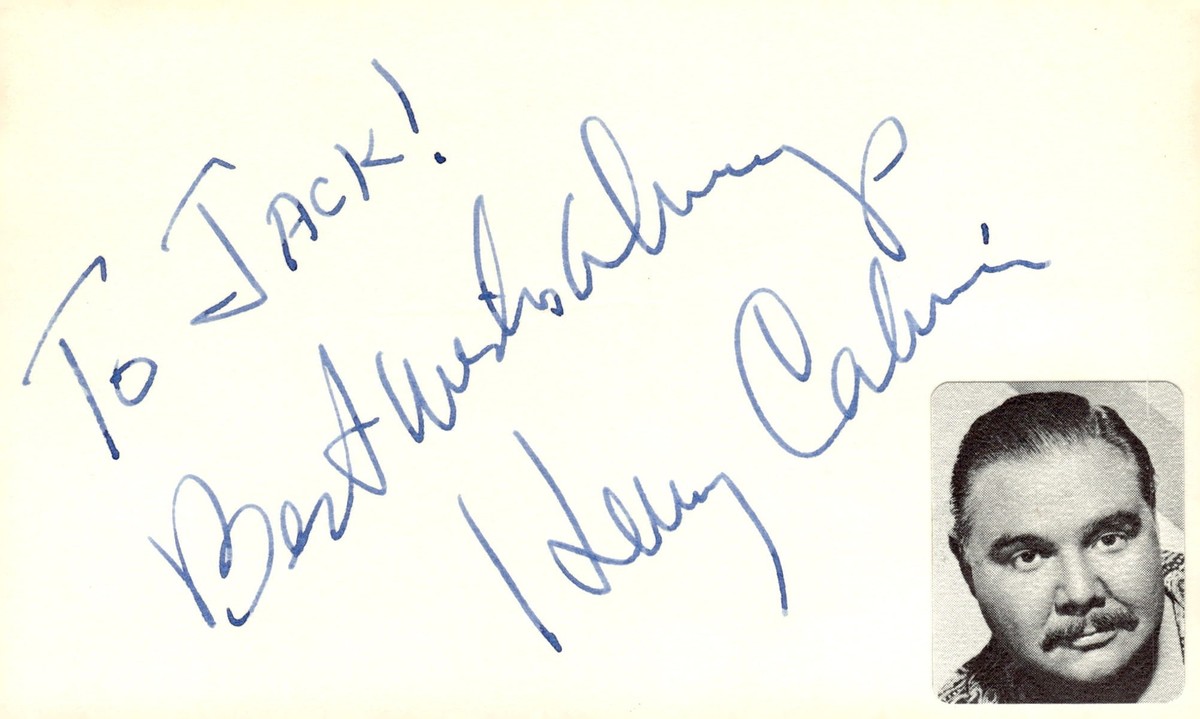 To JACK!
Best Wishes Always
Henry Calvin